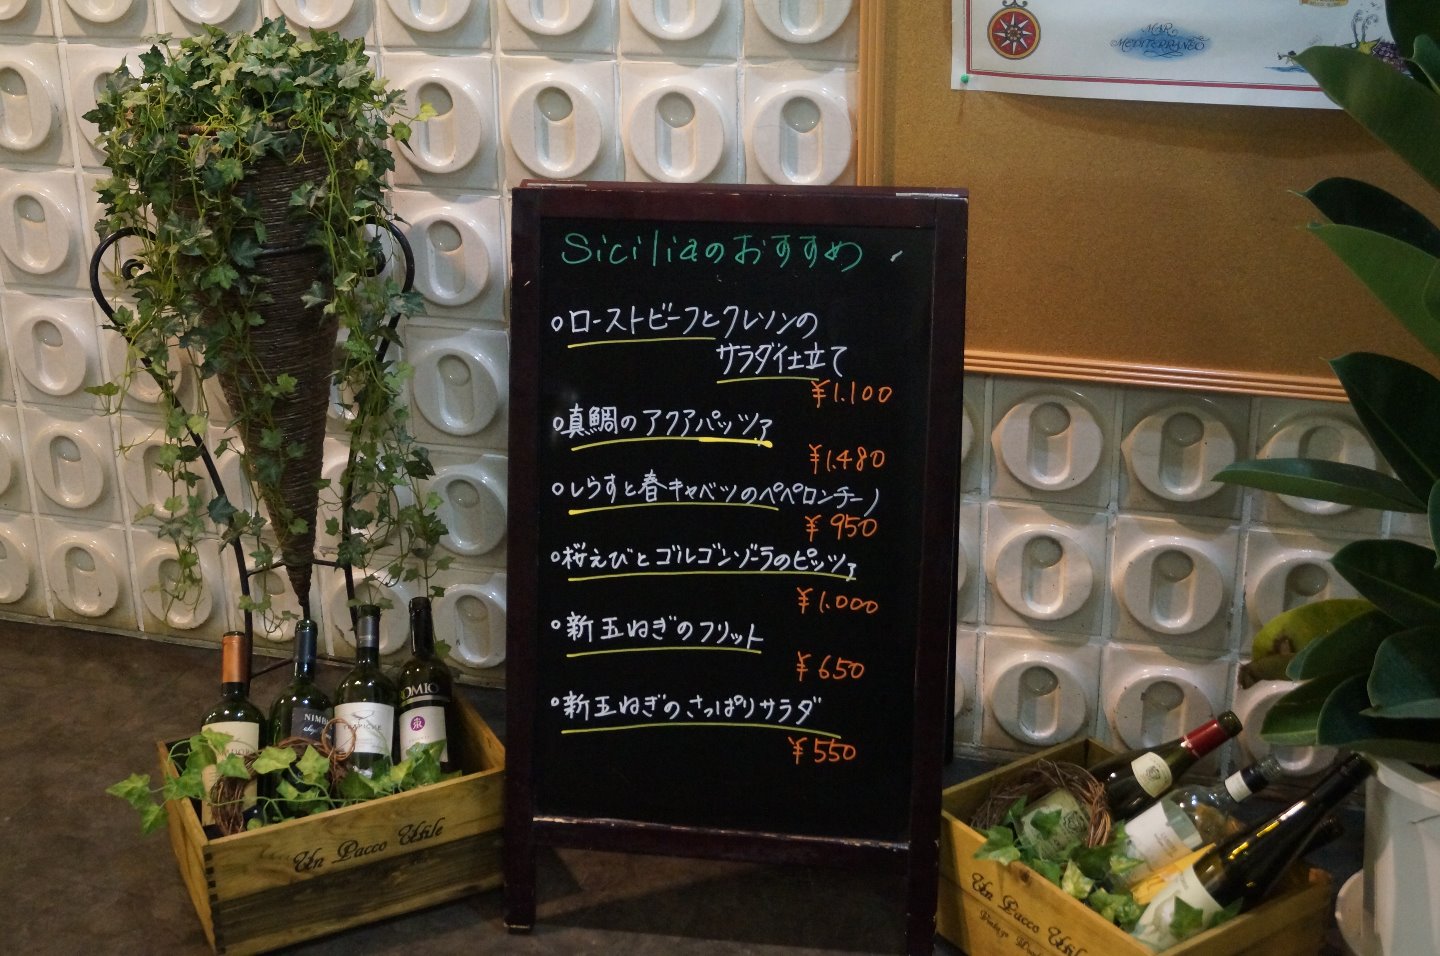 MAR
MEDITERRANEO
Siciliaのおすすめ
○ローストビーフとクレソンの
サラダ仕立て
¥1.100
○真鯛のアクアパッツァ
¥1.480
○しらすと春キャベツのペペロンチーノ
¥950
○桜えびとゴルゴンゾーラのピッツァ
¥1.000
○新玉ねぎのフリット
¥650
○新玉ねぎのさっぱりサラダ
¥550
OMIO
NIMB
Un Pacco Utile
Un Pacco Utile